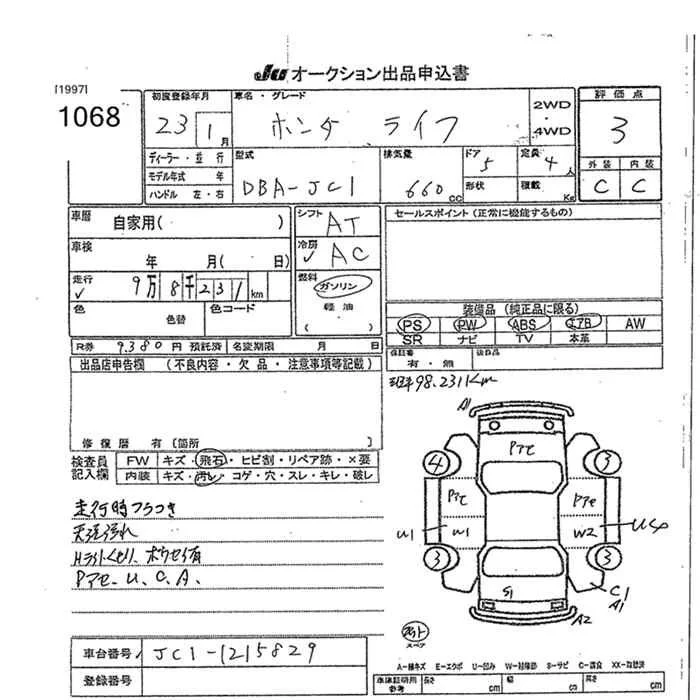 JU オークション出品申込書
[1997]
1068
初度登録年月
23 1月
車名・グレード
ホンダ ライフ
2WD
・
4WD
評価点
3
外装 内装
C C
ディーラー・並行
モデル年式 年
ハンドル 左・右
型式
DBA-JC1
排気量
660 CC
ドア 5
形状
定員 4人
積載 Kg
車歴
自家用( )
シフト AT
冷房 AC
セールスポイント(正常に機能するもの)
車検
年 月( 日)
走行
9万8千231km
燃料
ガソリン
軽油
( )
色
色替
色コード
装備品 (純正品に限る)
PS PW ABS エアB AW
SR ナビ TV 本革
R券 9,380円 預託済 名変期限 月 日
保証書
有・無
後日品
出品店申告欄 (不良内容・欠品・注意事項等記載)
98,231Km
修復歴 有[箇所 ]
検査員
記入欄
FW キズ・飛石・ヒビ割・リペア跡・×要
内装 キズ・汚レ・コゲ・穴・スレ・キレ・破レ
走行時フラつき
天張汚れ
Hライトくもり、ボウセイ有
Pアセ、U、C、A、
A1
Pアセ
4 3
Pアセ Pアセ
U1 W1 W2
3 3
S1
C1
A1
A2
スペア
車台番号 JC1-1215829
登録番号
A-線キズ E-エクボ U-凹み W-補修跡 S-サビ C-腐食 XX-交換済
車庫証明用
参考
長さ cm
幅 cm
高さ cm